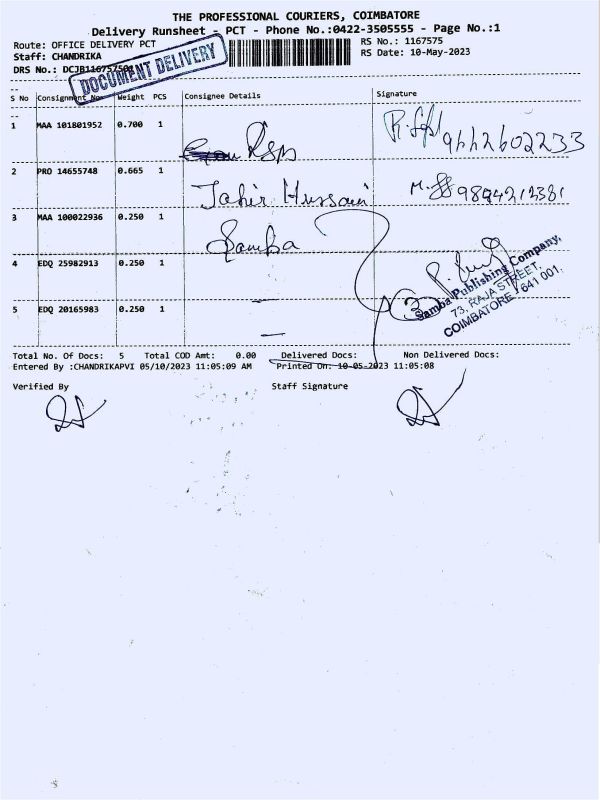 THE PROFESSIONAL COURIERS, COIMBATORE
Delivery Runsheet - PCT - Phone No.:0422-3505555 - Page No.:1
Route: OFFICE DELIVERY PCT
RS No.: 1167575
Staff: CHANDRIKA
RS Date: 10-May-2023
DRS No.: DCJB116757501
DOCUMENT DELIVERY
S No Consignment No Weight PCS Consignee Details Signature
1 MAA 101801952 0.700 1
9442602233
2 PRO 14655748 0.665 1
Tahir Hussain 9894212381
3 MAA 100022936 0.250 1
Samba
4 EDQ 25982913 0.250 1
Samba Publishing Company,
73, RAJA STREET,
COIMBATORE - 641 001.
5 EDQ 20165983 0.250 1
Total No. Of Docs: 5 Total COD Amt: 0.00 Delivered Docs: Non Delivered Docs:
Entered By :CHANDRIKAPVI 05/10/2023 11:05:09 AM Printed On: 10-05-2023 11:05:08
Verified By Staff Signature